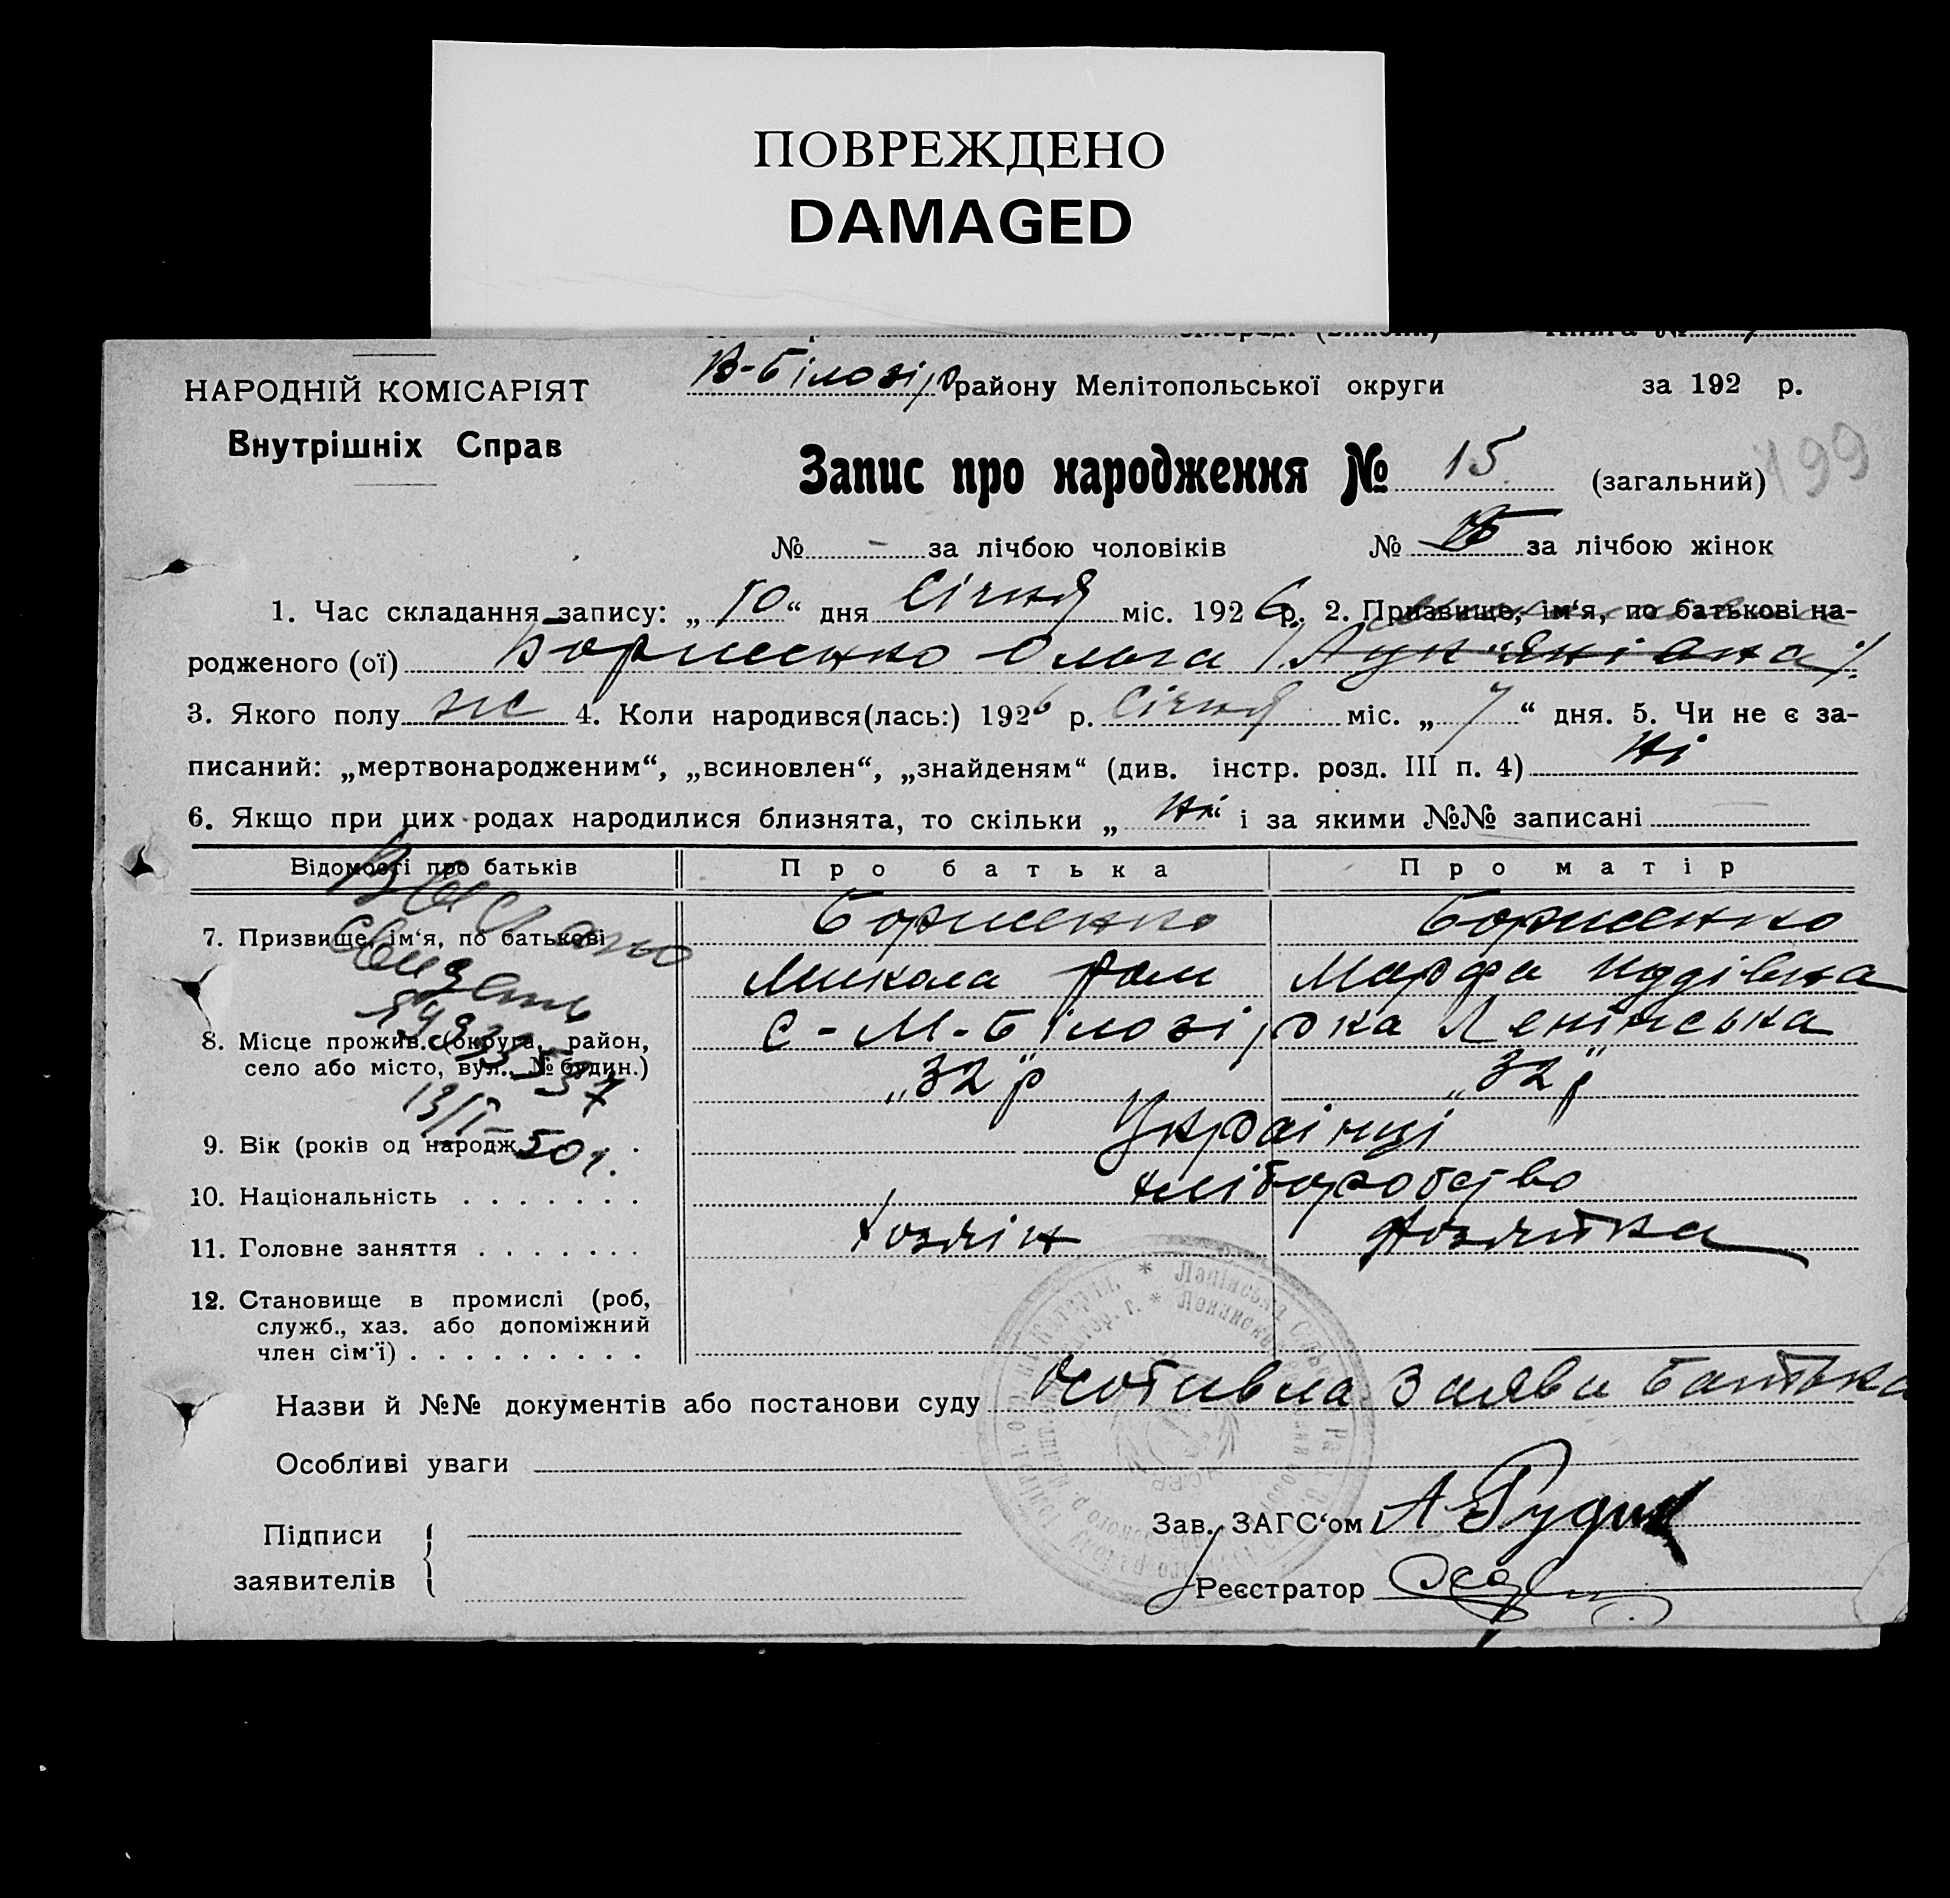 ПОВРЕЖДЕНО
DAMAGED
НАРОДНІЙ КОМІСАРІЯТ
Внутрішніх Справ
В-Білозір району Мелітопольської округи за 192 р.
Запис про народження № 15 (загальний)
199
№ - за лічбою чоловіків № за лічбою жінок
1. Час складання запису: „10“ дня Січня міс. 1926 р. 2. Призвище, ім‘я, по батькові на-
родженого (ої) Ольга
3. Якого полу жс 4. Коли народився(лась:) 1926 р. Січня міс. „7“ дня. 5. Чи не є за-
писаний: „мертвонародженим“, „всиновлен“, „знайденям“ (див. інстр. розд. III п. 4) Ні
6. Якщо при цих родах народилися близнята, то скільки „ Ні і за якими №№ записані
Відомості про батьків Про батька Про матір
7. Призвище, ім‘я, по батькові
Микола Ром Марфа
8. Місце прожив. (округа, район,
село або місто, вул., № будин.)
с-М-Білозірка Ленінська
„32“ р „32“ р
Видано
13/I-50г.
9. Вік (років од народж. Українці
10. Національність . . . . . . . хліборобство
11. Головне заняття . . . . . . . Хозяін Хозяйка
12. Становище в промислі (роб,
служб., хаз. або допоміжний
член сім‘ї) . . . . . . . . .
Назви й №№ документів або постанови суду заяви батька
Особливі уваги
Підписи
заявителів
Зав. ЗАГС‘ом
Реєстратор